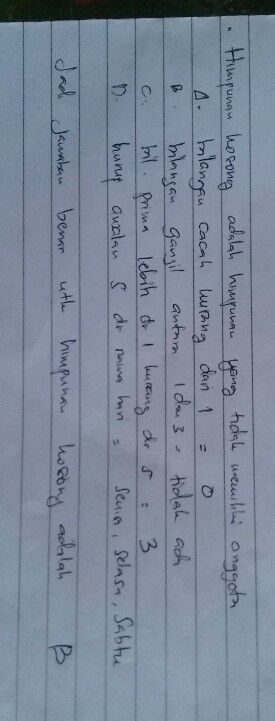 • Himpunan kosong adalah himpunan yang tidak memiliki anggota
A. bilangan cacah kurang dari 1 = 0
B. bilangan ganjil antara 1 dan 3 = tidak ada
C. bil. prima lebih dr 1 kurang dr 5 = 3
D. huruf awalan S dr nama hari = Senin, Selasa, Sabtu
Jadi jawaban benar utk himpunan kosong adalah B